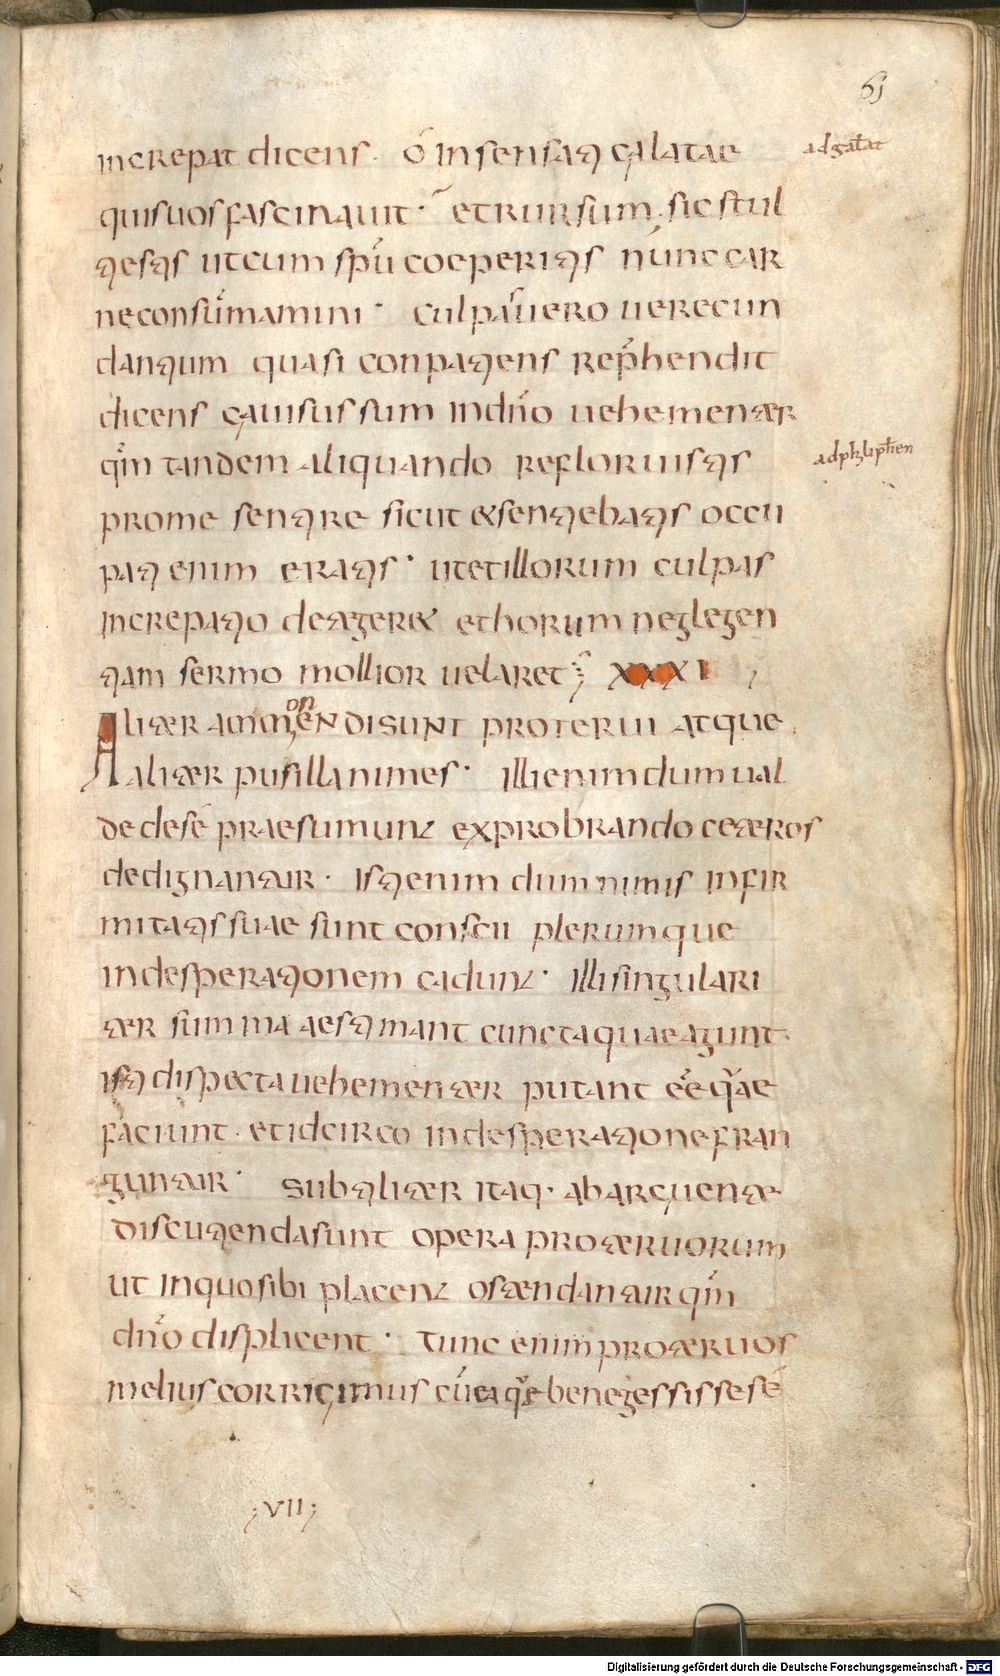 61
increpat dicens· O insensati galatae
adgalat
quisuos fascinauit· et rursum· sic stul
ti estis ut cum spu coeperitis nunc car
ne consummamini· culpas uero uerecun
dantium quasi conpatiens rephendit
dicens gauisus sum in dno uehementer
qm tandem aliquando refloruistis
adphyliphen
prome sentire sicut & sentiebatis occu
pati enim eratis· ut et illorum culpas
increpatio detegeret et horum neglegen
tiam sermo mollior uelaret; XXXI
Aliter ammonendi sunt proterui atque
aliter pusillanimes· Illi enim dum ual
de de se praesumunt exprobrando ceteros
dedignantur· Isti enim dum nimis infir
mitatis suae sunt conscii plerumque
in desperationem cadunt· Illi singulari
ter summa aestimant cuncta quae agunt·
isti dispecta uehementer putant ee quae
faciunt· et idcirco in desperatione fran
guntur· Subtiliter itaq· ab arguente
discutienda sunt opera proteruorum
ut in quo sibi placent ostendantur qm
dno displicent· Tunc enim proteruos
melius corrigimus cum ea quae bene gessisse se
;VII;
Digitalisierung gefördert durch die Deutsche Forschungsgemeinschaft - DFG